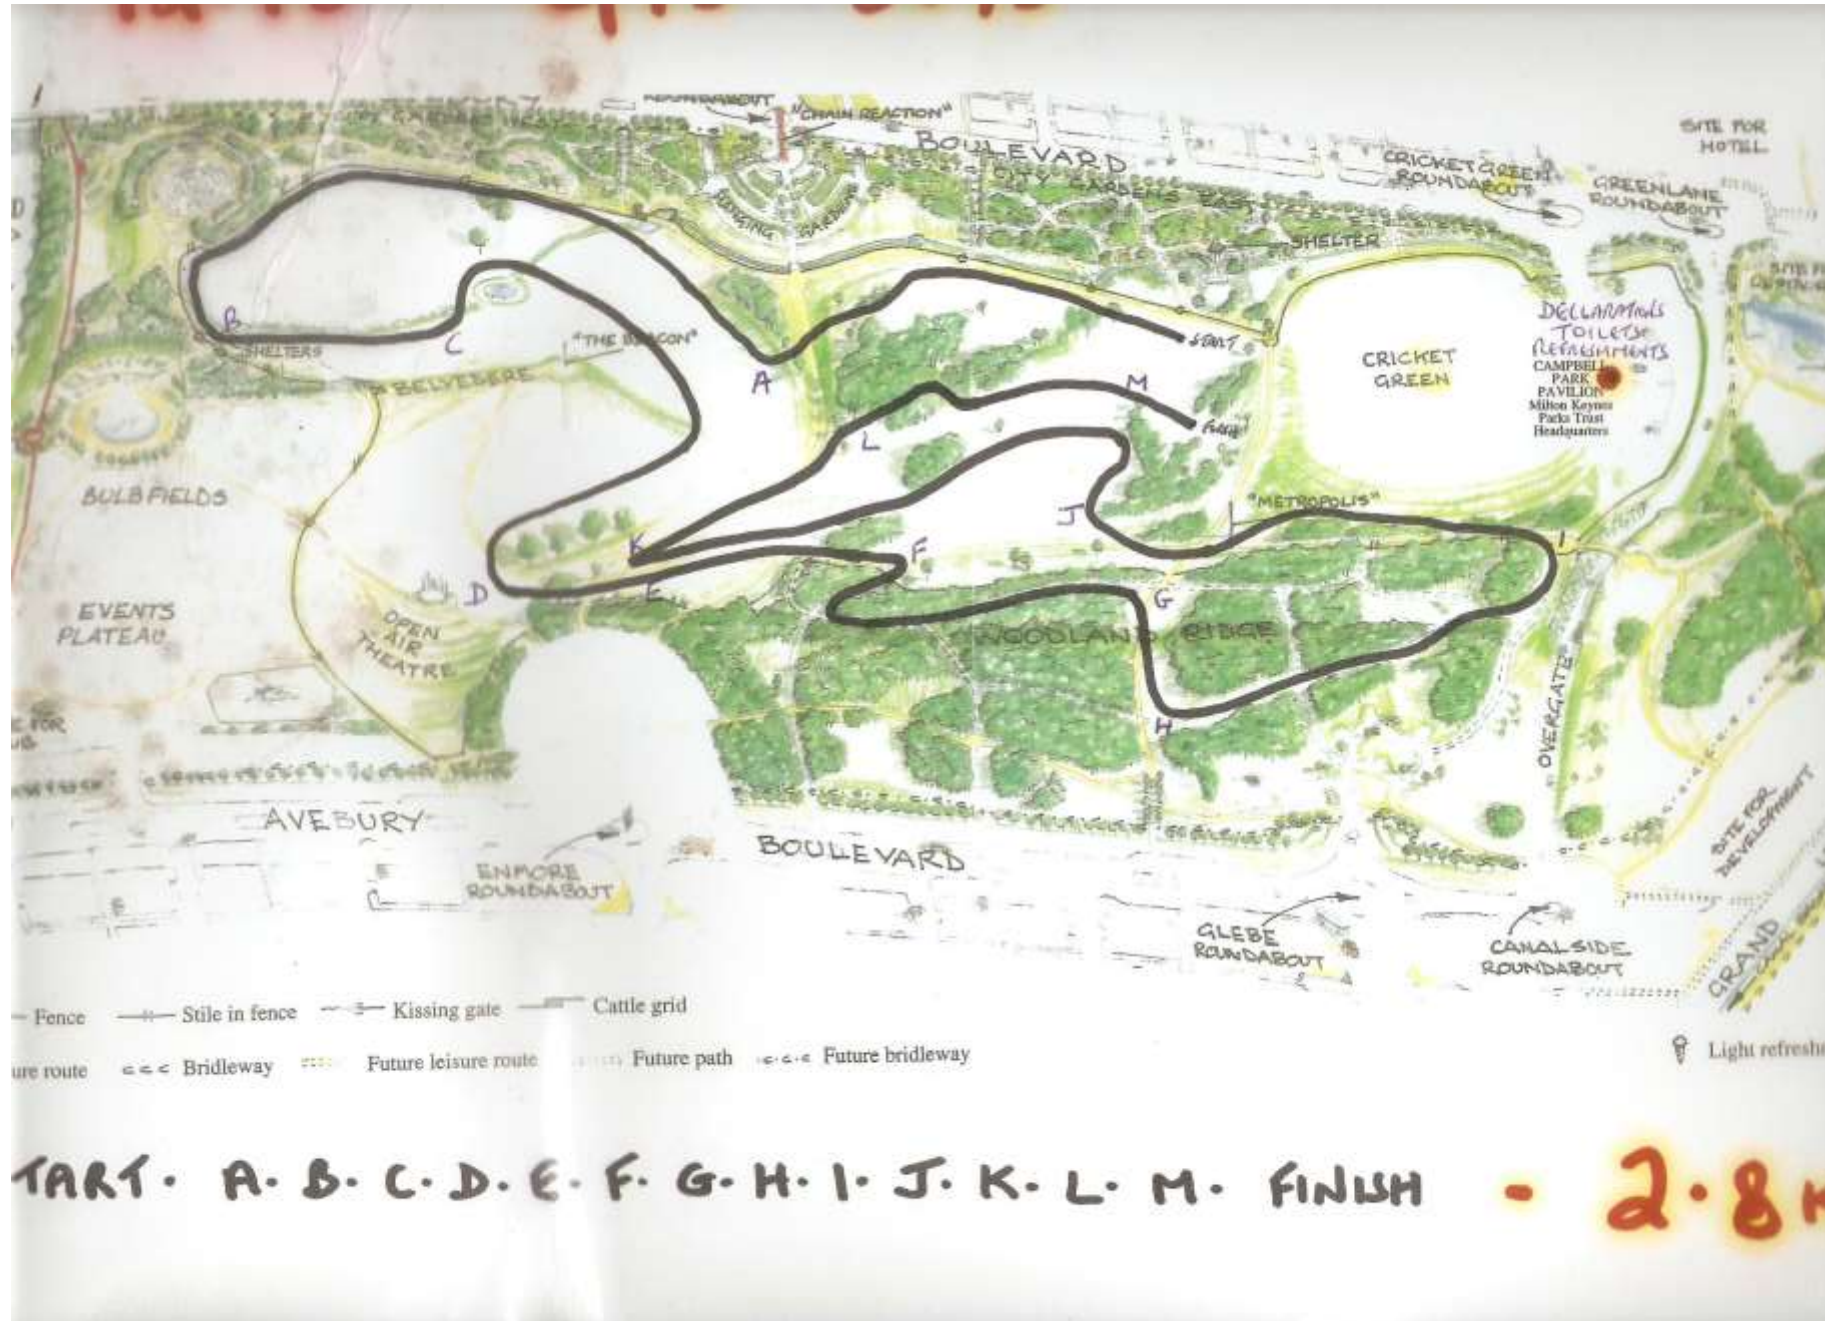 "CHAIN REACTION"
BOULEVARD
CITY GARDENS EAST
SITE FOR
HOTEL
CRICKET GREEN
ROUNDABOUT
GREENLANE
ROUNDABOUT
GARDEN
SHELTER
START
B
C
SHELTERS
"THE BEACON"
BELVEDERE
A
M
L
FINISH
CRICKET
GREEN
TOILETS
REFRESHMENTS
CAMPBELL
PARK
PAVILION
Milton Keynes
Parks Trust
Headquarters
BULBFIELDS
"METROPOLIS"
J
K
F
I
D
E
G
H
EVENTS
PLATEAU
OPEN
AIR
THEATRE
WOODLAND RIDGE
OVERGATE
AVEBURY
BOULEVARD
ENMORE
ROUNDABOUT
GLEBE
ROUNDABOUT
CANALSIDE
ROUNDABOUT
SITE FOR
DEVELOPMENT
GRAND
Fence Stile in fence Kissing gate Cattle grid
ure route Bridleway Future leisure route Future path Future bridleway
Light refreshe
TART. A. B. C. D. E. F. G. H. I. J. K. L. M. FINISH - 2.8 K